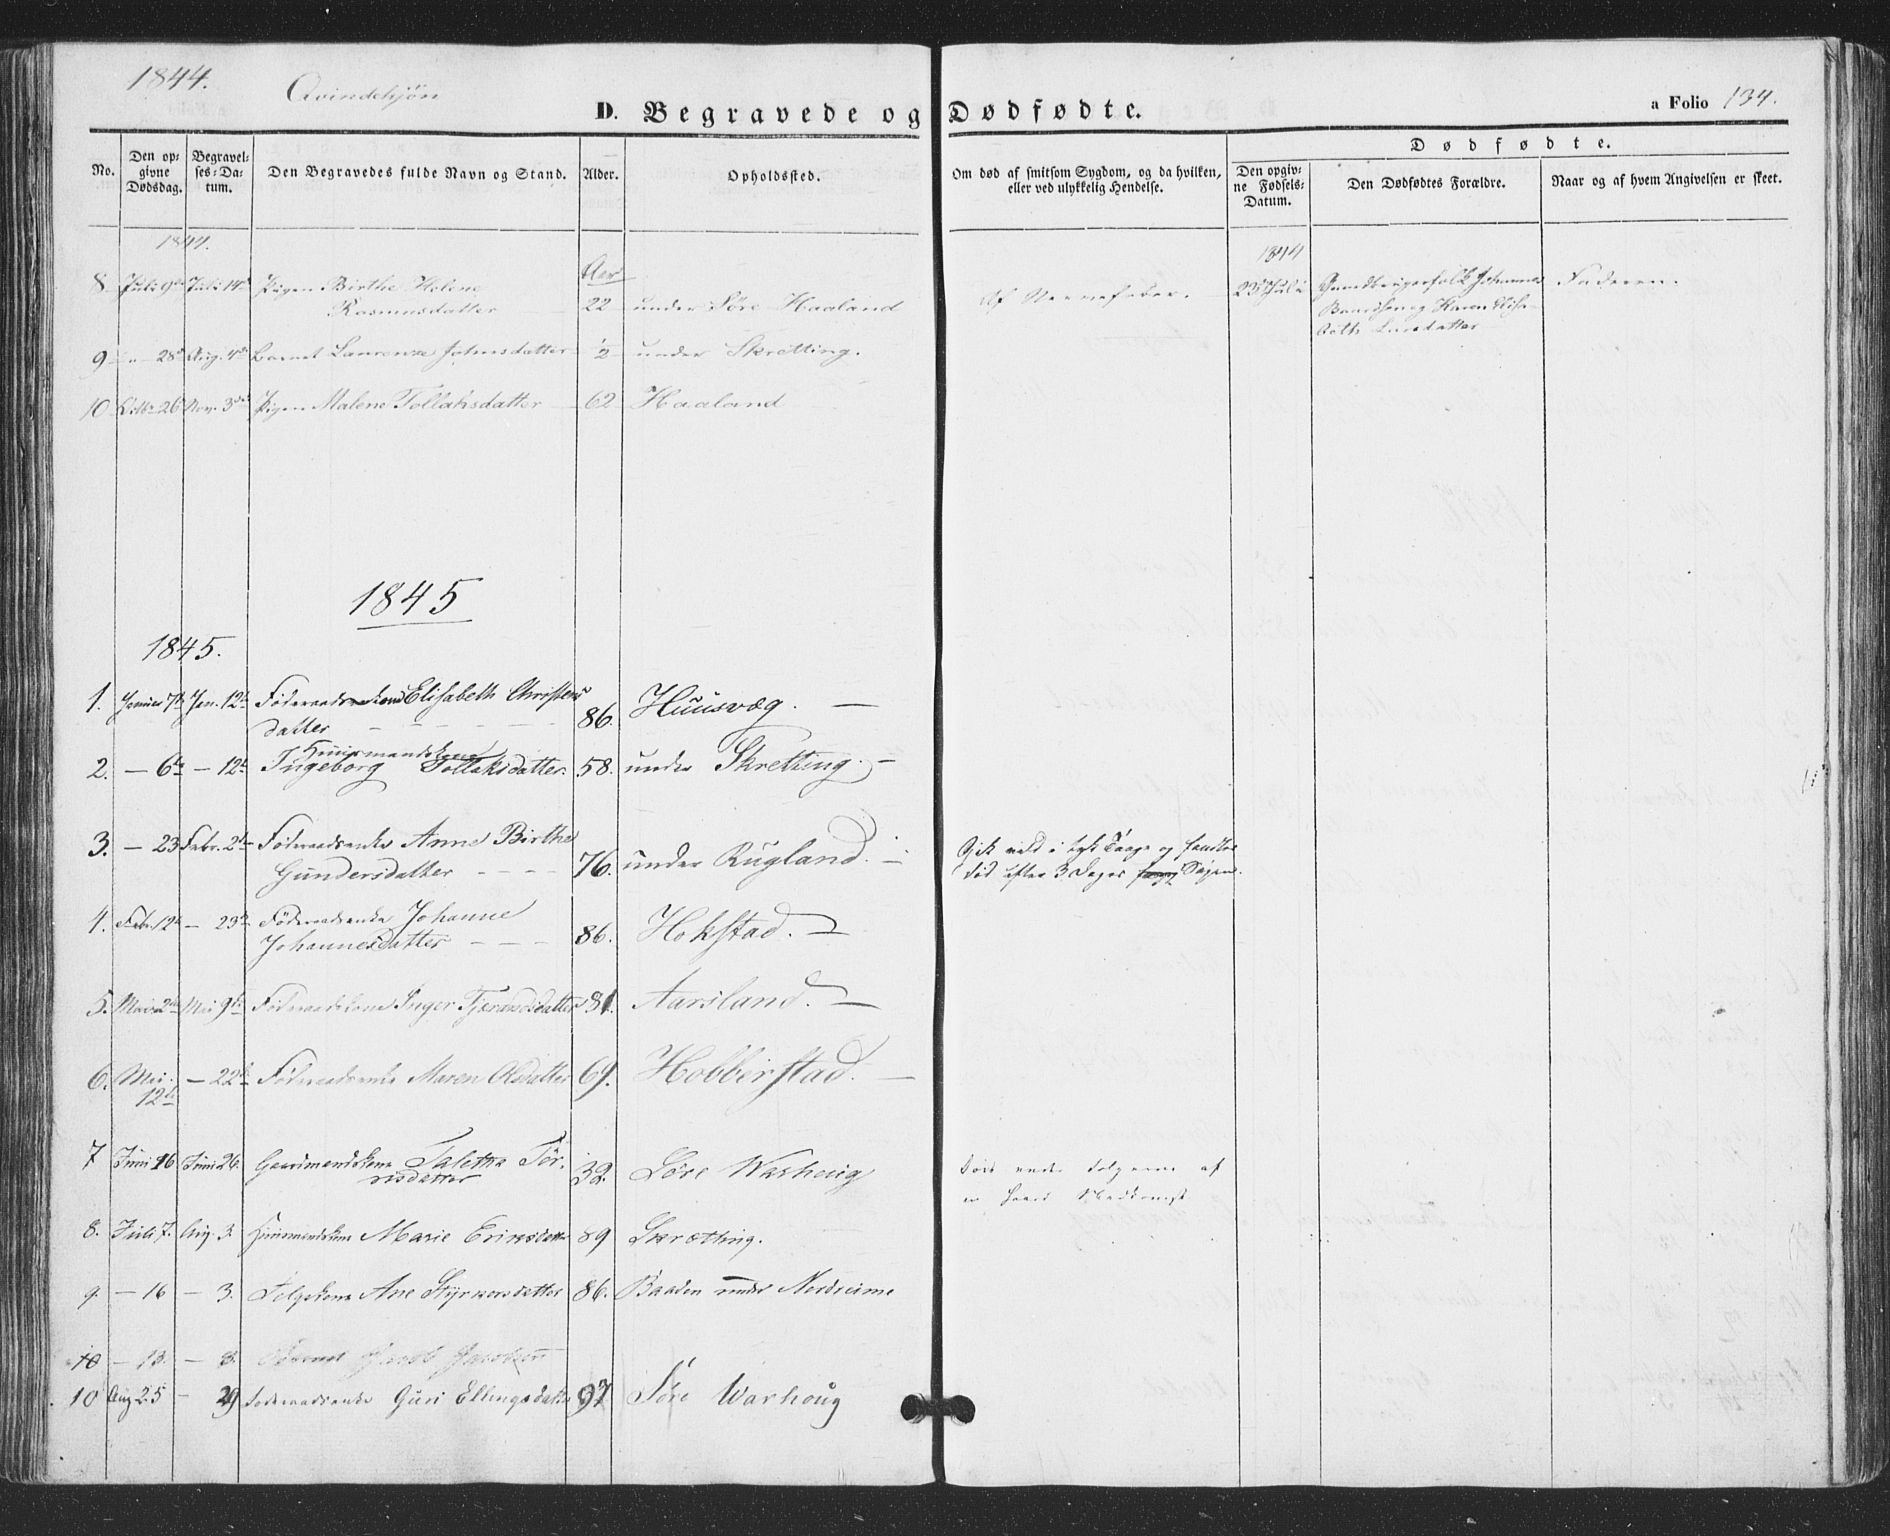 1844. Qvindekjön
D. Begravede og Dødfødte.
a Folio 134.
No.
Den opgivne Dødsdag.
Begravelses-Datum.
Den Begravedes fulde Navn og Stand.
Alder.
Opholdssted.
Om død af smitsom Sygdom, og da hvilken,
eller ved ulykkelig Hendelse.
Dødfødte.
Den opgivne Fødsels-Datum.
Den Dødfødtes Forældre.
Naar og af hvem Angivelsen er skeet.
1844. 1844
8 Juli 9de Juli 14de Pigen Birthe Helene Aar
Rasmusdatter 22 under Söre Haaland Af Nervefeber. 23 Juli Gaardbrugerfolk Johannes Faderen.
og Karen Elisa-
beth Larsdatter
9 - 28de Aug. 4de Barnet Laurenze Johnsdatter 1/2 under Skretting.
10 Octbr 26 Nov. 3die Pigen Malene Tollaksdatter 62 Haaland
1845
1845.
1. Januar 7de Jan. 12te Föderaadskone Elisabeth Christens
datter 86. Huusvæg.
Huusmandskone
2. - 6te - 12te Ingeborg Tollaksdatter. 58. under Skretting.
3. - 23 Febr. 2den Föderaadsenke Anne Birthe
Gundersdatter 76. under Rugland. Gik vild i tyk Taage og fandtes
död efter 3 Dages Søgen.
4. Febr. 12te - 23de Föderaadsenke Johanne
Johannesdatter 86. Hokstad.
5. Mai 2den Mai 9de Föderaadskone Inger Tjerandsdatter 81. Aarsland.
6. Mai - 22de Föderaadsenke Maren Olsdatter 69. Hobberstad.
12te
7 Juni 16 Juni 26. Gaardmandskone Taletha Tör-
risdatter 32. Söre Warhoug Döde under Følgerne af
en haard Nedkomst
8. Juli 7. Aug. 3. Huusmandskone Marie Eriksdatter 89 Skrætting.
9. - 16 - 3. Ane Styrkorsdatter 86. Baaden under Nordreime
10 - 13. - 3. Barnet Jacob Jacobsen
10 Aug 25 - 29 Foderaadsenke Guri Ellingsdatter 97 Söre Warhoug